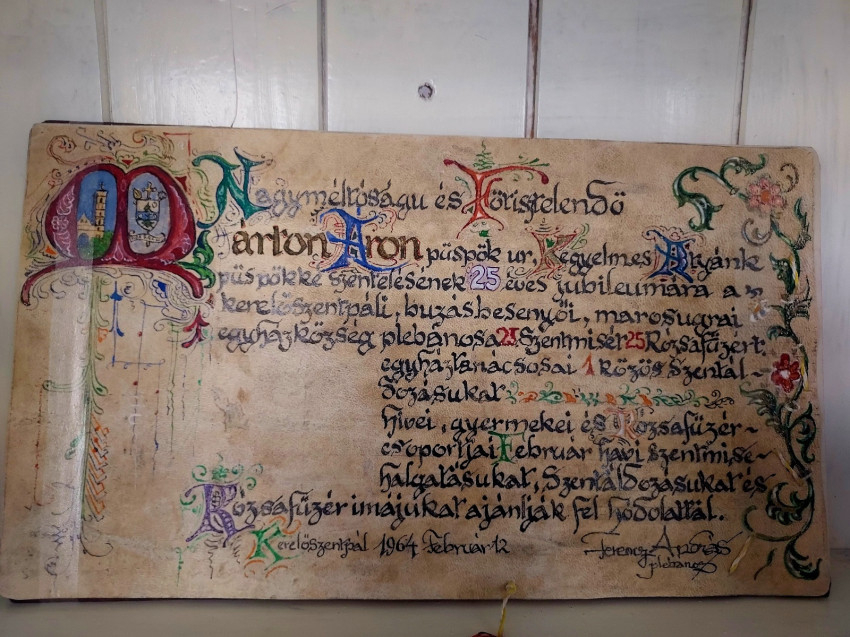 Nagyméltóságu és Főtisztelendő
Márton Áron püspök ur, Kegyelmes Atyánk
püspökké szentelésének 25 éves jubileumára a
kerelőszentpáli, buzásbesenyői, marosugrai
egyházközség plébánosa 25 Szentmisét 25 Rózsafűzért
egyháztanácsosai 1 közös Szentál-
dozásukat
hivei, gyermekei és Rózsafűzér-
csoportjai Február havi szentmise-
halgatásukat, Szentáldozásukat és
Rózsafűzér imájukat ajánlják fel hódolattal.
Kerelőszentpál 1964 Február 12
Ferencz
plébános